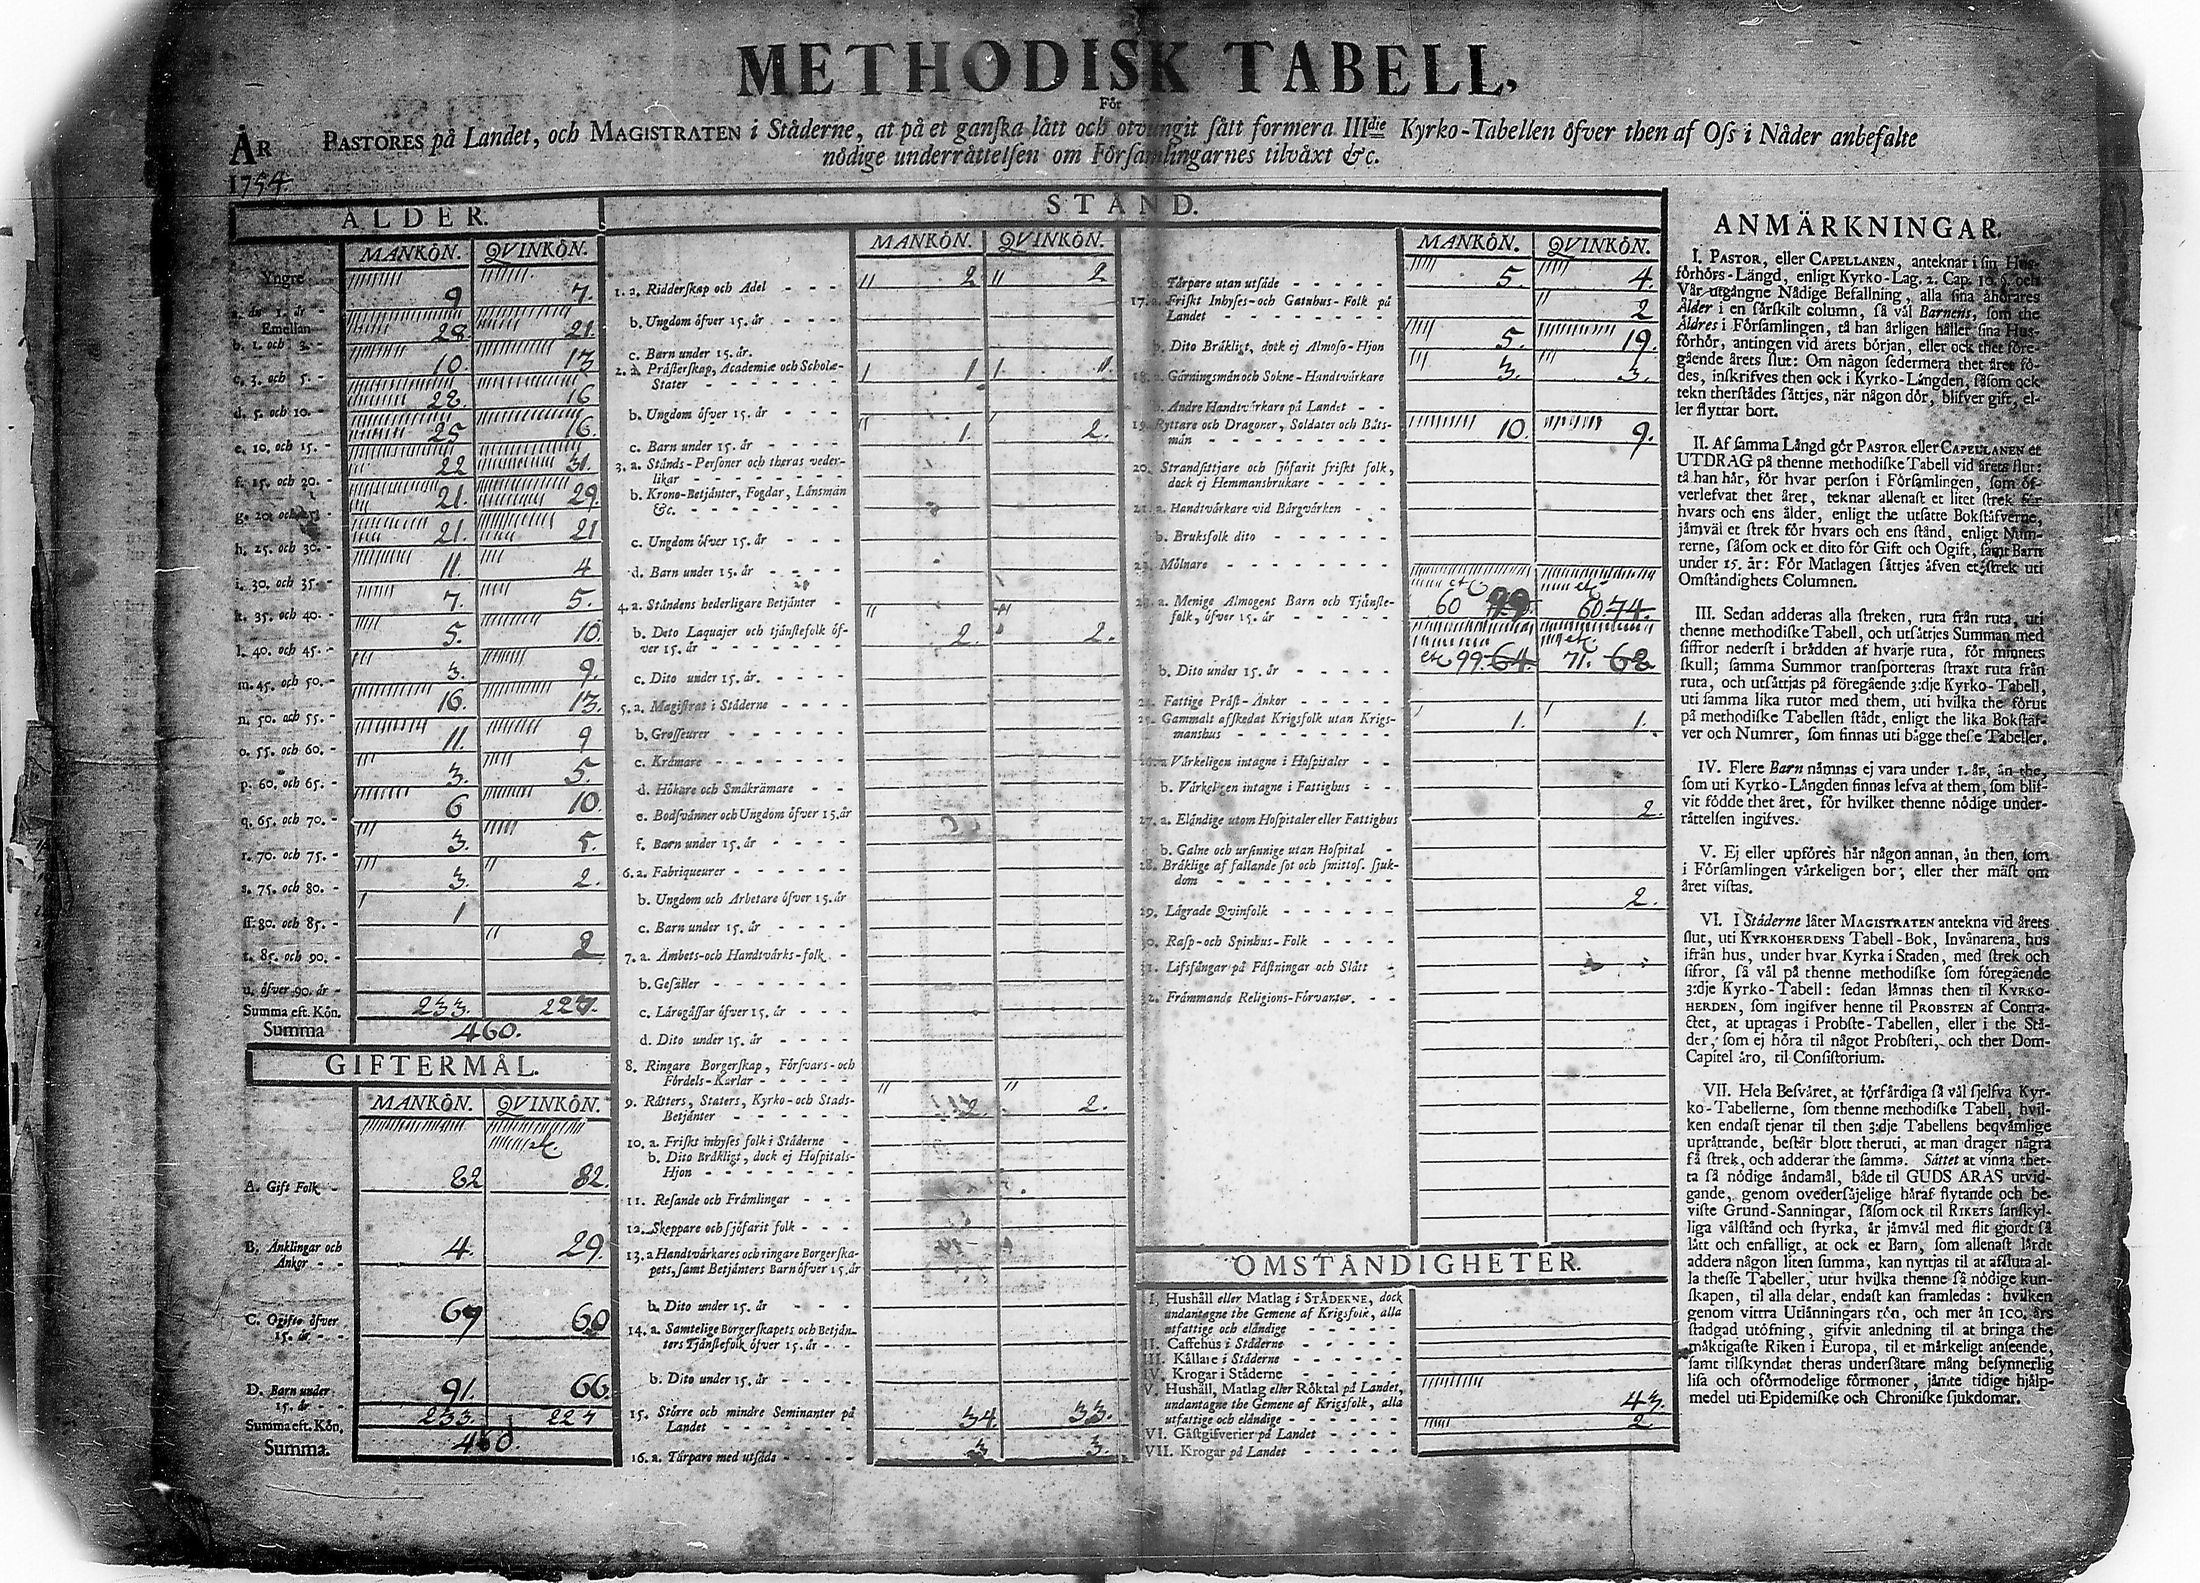 METHODISK TABELL,
För
ÅR PASTORES på Landet, och MAGISTRATEN i Ståderne, at på et ganſka lått och otvungit ſått formera IIIdie Kyrko-Tabellen öfver then af Oſs i Nåder anbefalte
1754 nödige underråttelſen om Förſamlingarnes tilvåxt &c.
ÅLDER.
MANKÖN. QVINKÖN.
Yngre
a. än 1. år - 9 7.
Emellan
b. 1. och 3. - 28 21
c. 3. och 5. - 10. 13
d. 5. och 10. - 28 16
e. 10. och 15. - 25 16.
f. 15. och 20. - 22 31.
g. 20. och 25. 21. 29.
h. 25. och 30. - 21. 21
i. 30. och 35. - 11. 4
k. 35. och 40. - 7. 5.
l. 40. och 45. - 5. 10.
m. 45. och 50. - 3. 9.
n. 50. och 55. - 16. 13.
o. 55. och 60. - 11. 9
p. 60. och 65. - 3. 5.
q. 65. och 70. - 6 10.
r. 70. och 75. - 3. 5.
s. 75. och 80. - 3. 2.
ſſ. 80. och 85. - 1
t. 85. och 90. - 2
u. öfver 90. år -
Summa eft. Kön. 233. 227.
Summa 460.
GIFTERMÅL.
MANKÖN. QVINKÖN.
etc.
A. Gift Folk - 82 82.
B. Änklingar och 4. 29.
Änkor - -
C. Ogifte öfver 60
15. år - -
D. Barn under 91. 66.
15. år - -
Summa eft. Kön, 233. 227
Summa. 460.
STÅND.
MANKÖN. QVINKÖN.
1. a. Ridderſkap och Adel - - 2 2
b. Ungdom öfver 15. år - - - -
c. Barn under 15. år.
2. a. Pråſterſkap, Academiæ och Scholæ-
Stater - - - - - - - 1 1
b. Ungdom öfver 15. år - - - -
c. Barn under 15. år - - - - 1. 2.
3. a. Stånds-Perſoner och theras veder-
likar - - - - - - -
b. Krono-Betjånter, Fogdar, Lånsmån
&c. - - - - - - - -
c. Ungdom öfver 15. år - - - -
d. Barn under 15. år - - - -
4. a. Ståndens hederligare Betjånter -
b. Deto Laquajer och tjånſtefolk öf-
ver 15. år - - - - - - 2. 2.
c. Dito under 15. år. - - - -
5. a. Magiſtrat i Ståderne - - - -
b. Groſſeurer - - - - - -
c. Kråmare - - - - - - -
d. Hökare och Småkråmare - -
e. Bodſvånner och Ungdom öfver 15. år
f. Barn under 15. år - - - -
6. a. Fabriqueurer - - - - - -
b. Ungdom och Arbetare öfver 15. år
c. Barn under 15. år - - - -
7. a. Åmbets-och Handtvårks-folk - -
b. Geſåller - - - - - - -
c. Lårogåſſar öfver 15. år - - -
d. Dito under 15. år - - - -
8. Ringare Borgerſkap, Förſvars-och
Fördels-Karlar - - - - -
9. Råtters, Staters, Kyrko-och Stads-
Betjånter - - - - - - 2. 2.
10. a. Friſkt inhyſes folk i Ståderne -
b. Dito Bråkligt, dock ej Hoſpitals-
Hjon - - - - - - -
11. Reſande och Fråmlingar - - -
12. Skeppare och ſjöfarit folk - - -
13. a Handtvårkares och ringare Borgerſka-
pets, ſamt Betjånters Barn öfver 15. år
b. Dito under 15. år - - -
14. a. Samtelige Borgerſkapets och Betjån-
ters Tjånſtefolk öfver 15. år - -
b. Dito under 15. år - - - -
15. Större och mindre Seminanter på
Landet - - - - - - - 34 33.
16. a. Tårpare med utſåde - - - - 3 3.
MANKÖN. QVINKÖN.
b. Tårpare utan utſåde - - - - - 5. 4.
17. a. Friſkt Inhyſes-och Gatuhus-Folk på
Landet - - - - - - - - 2
b. Dito Bråkligt, dock ej Almoſo-Hjon 5. 19.
18. a. Gårningsmån och Sokne-Handtvårkare 3. 3.
b. Andre Handtvårkare på Landet - -
19. Ryttare och Dragoner, Soldater och Båts-
mån - - - - - - - - - 10. 9.
20. Strandſittjare och ſjöfarit friſkt folk,
dock ej Hemmansbrukare - - - -
21. a. Handtvårkare vid Bårgvårken - -
b. Bruksfolk dito - - - - - -
22. Mölnare - - - - - - - -
23. a. Menige Almogens Barn och Tjånſte-
folk, öfver 15. år - - - - - - 60 99. 60. 74.
b. Dito under 15. år - - - - - etc 99. 64. 71. 68
24. Fattige Pråſt-Änkor - - - - -
25. Gammalt afſkedat Krigsfolk utan Krigs-
manshus - - - - - - - 1. 1.
26. a Vårkeligen intagne i Hoſpitaler - -
b. Vårkeligen intagne i Fattighus - -
27. a. Elåndige utom Hoſpitaler eller Fattighus 2.
b. Galne och urſinnige utan Hoſpital -
28. Bråklige af fallande ſot och ſmittoſ. ſjuk-
dom - - - - - - - -
29. Lågrade Qvinfolk - - - - - - 2.
30. Raſp-och Spinhus-Folk - - - -
31. Lifsfångar på Fåſtningar och Slått
32. Fråmmande Religions-Förvanter. - -
OMSTÅNDIGHETER.
I. Hushåll eller Matlag i STÅDERNE, dock
undantagne the Gemene af Krigsfolk, alla
utfattige och elåndige - - - - -
II. Caffehus i Ståderne - - - - -
III. Kållare i Ståderne - - - - - -
IV. Krogar i Ståderne - - - - - -
V. Hushåll, Matlag eller Röktal på Landet,
undantagne the Gemene af Krigsfolk, alla 43.
utfattige och elåndige - - - - - - 2
VI. Gåſtgifverier på Landet - - - -
VII. Krogar på Landet - - - - -
ANMÄRKNINGAR.
I. PASTOR, eller CAPELLANEN, anteknar i ſin Hus-
förhörs-Långd, enligt Kyrko-Lag. 2. Cap. 10. §. och
Vår utgångne Nådige Befallning, alla ſina åhörares
Ålder i en ſårſkilt column, ſå vål Barnens, ſom the
Åldres i Förſamlingen, tå han årligen håller ſina Hus-
förhör, antingen vid årets början, eller ock thet före-
gående årets ſlut: Om någon ſedermera thet året fö-
des, inſkrifves then ock i Kyrko-Långden, ſåſom ock
tekn therſtådes ſåttjes, når någon dör, blifver gift, el-
ler flyttar bort.
II. Af ſamma Långd gör PASTOR eller CAPELLANEN et
UTDRAG på thenne methodiſke Tabell vid årets ſlut:
tå han hår, för hvar perſon i Förſamlingen, ſom öf-
verlefvat thet året, teknar allenaſt et litet ſtrek för
hvars och ens ålder, enligt the utſatte Bokſtåfverne,
jåmvål et ſtrek för hvars och ens ſtånd, enligt Num-
rerne, ſåſom ock et dito för Gift och Ogift, ſamt Barn
under 15. år: För Matlagen ſåttjes åfven et ſtrek uti
Omſtåndighets Columnen.
III. Sedan adderas alla ſtreken, ruta från ruta, uti
thenne methodiſke Tabell, och utſåttjes Summan med
ſiffror nederſt i brådden af hvarje ruta, för minnets
ſkull; ſamma Summor transporteras ſtraxt ruta från
ruta, och utſåttjas på föregående 3:dje Kyrko-Tabell,
uti ſamma lika rutor med them, uti hvilka the förut
på methodiſke Tabellen ſtådt, enligt the lika Bokſtåf-
ver och Numrer, ſom finnas uti bågge theſſe Tabeller.
IV. Flere Barn nåmnas ej vara under 1. år, ån the,
ſom uti Kyrko-Långden finnas lefva af them, ſom blif-
vit födde thet året, för hvilket thenne nödige under-
råttelſen ingifves.
V. Ej eller upföres hår någon annan, ån then, ſom
i Förſamlingen vårkeligen bor, eller ther måſt om
året viſtas.
VI. I Ståderne låter MAGISTRATEN antekna vid årets
ſlut, uti KYRKOHERDENS Tabell-Bok, Invånarena, hus
ifrån hus, under hvar Kyrka i Staden, med ſtrek och
ſifror, ſå vål på thenne methodiſke ſom föregående
3:dje Kyrko-Tabell: ſedan låmnas then til KYRKO-
HERDEN, ſom ingifver henne til PROBSTEN af Contra-
ctet, at uptagas i Probſte-Tabellen, eller i the Stå-
der, ſom ej höra til något Probſteri, och ther Dom-
Capitel åro, til Conſiſtorium.
VII. Hela Beſvåret, at förfårdiga ſå vål ſjelfva Kyr-
ko-Tabellerne, ſom thenne methodiſke Tabell, hvil-
ken endaſt tjenar til then 3:dje Tabellens beqvåmlige
upråttande, beſtår blott theruti, at man drager några
få ſtrek, och adderar the ſamma. Såttet at vinna thet-
ta ſå nödige åndamål, både til GUDS ÄRAS utvid-
gande, genom ovederſåjelige håraf flytande och be-
viſte Grund-Sanningar, ſåſom ock til RIKETS ſanſkyl-
liga vålſtånd och ſtyrka, år jåmvål med flit gjordt ſå
lått och enfalligt, at ock et Barn, ſom allenaſt lårdt
addera någon liten ſumma, kan nyttjas til at afſluta al-
la theſſe Tabeller, utur hvilka thenne ſå nödige kun-
ſkapen, til alla delar, endaſt kan framledas: hvilken
genom vittra Utlånningars rön, och mer ån 100. års
ſtadgad utöfning, gifvit anledning til at bringa the
måktigaſte Riken i Europa, til et mårkeligt anſeende,
ſamt tilſkyndat theras underſåtare mång beſynnerlig
liſa och oförmodelige förmoner, jåmte tidige hjålp-
medel uti Epidemiſke och Chroniſke ſjukdomar.